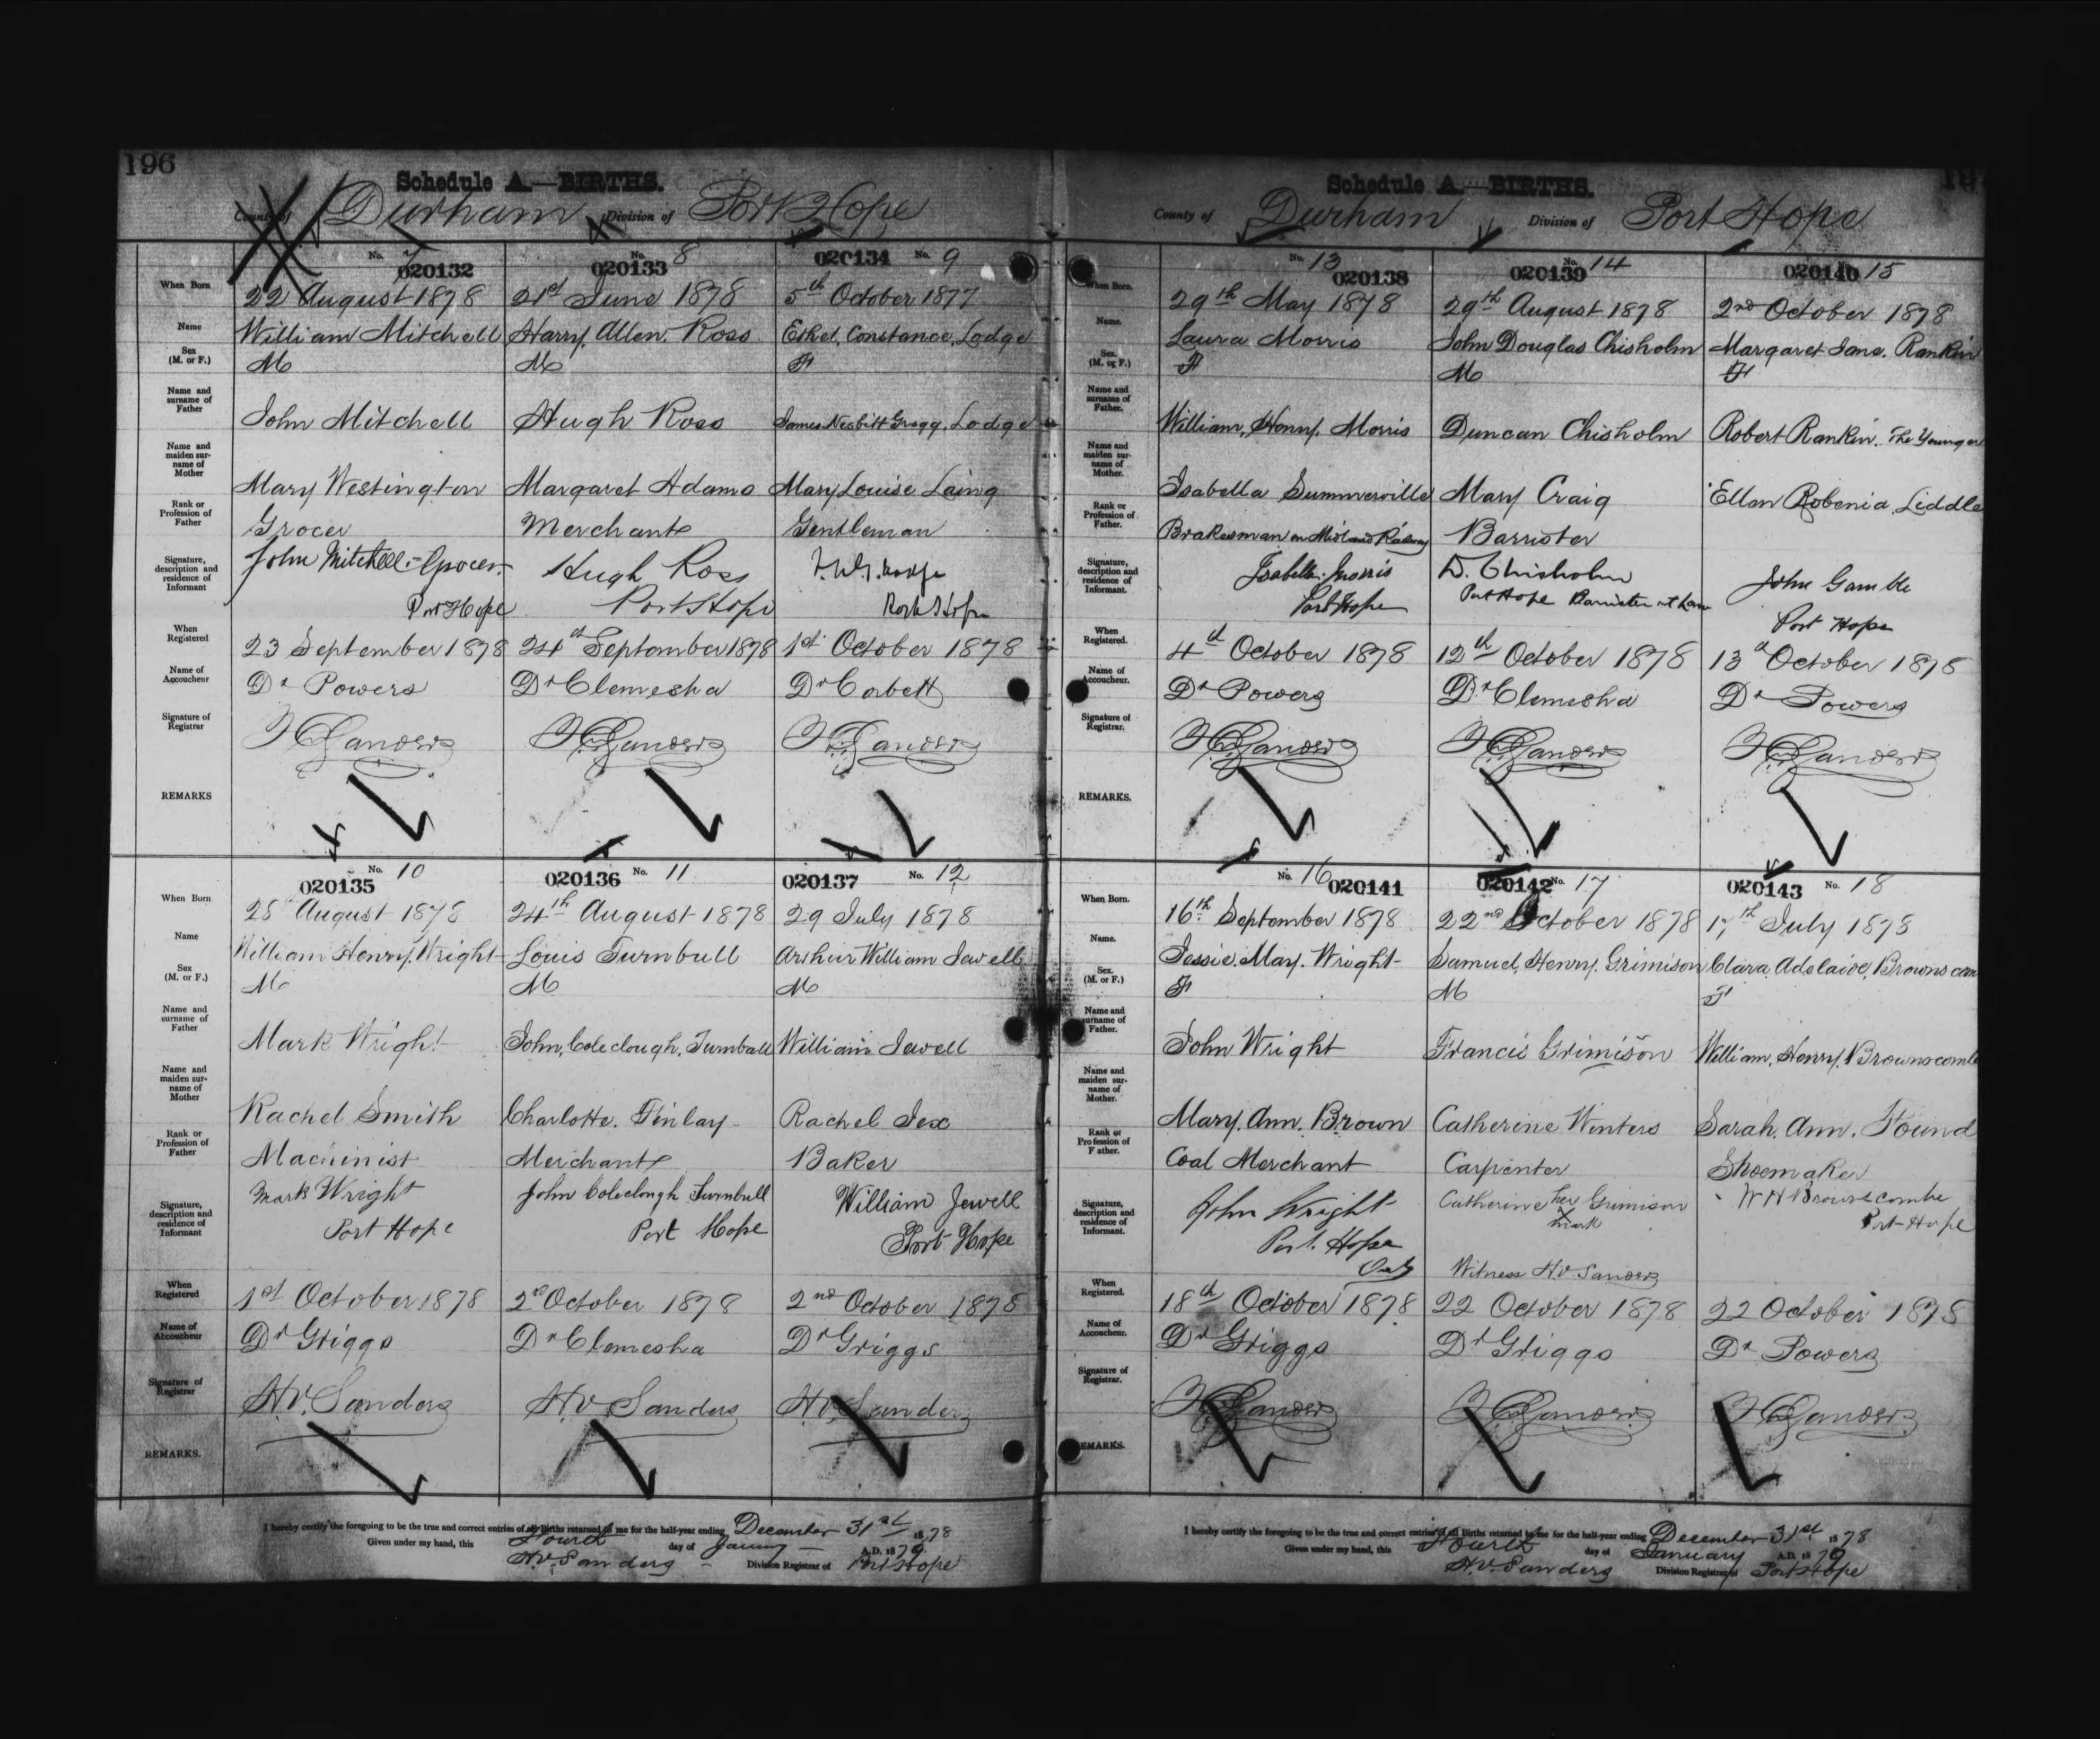 196
Schedule A.—BIRTHS.
County of Durham Division of Port Hope
No. 7 020132
When Born 22 August 1878
Name William Mitchell
Sex (M. or F.) M
Name and surname of Father John Mitchell
Name and maiden surname of Mother Mary Westington
Rank or Profession of Father Grocer
Signature, description and residence of Informant John Mitchell - Grocer
Port Hope
When Registered 23 September 1878
Name of Accoucheur Dr Powers
Signature of Registrar H.V. Sanders
REMARKS
No. 8 020133
21st June 1878
Harry Allen Ross
M
Hugh Ross
Margaret Adams
Merchant
Hugh Ross
Port Hope
24th September 1878
Dr Clemesha
H.V. Sanders
020134 No. 9
5th October 1877
Ethel, Constance, Lodge
F
James Nesbitt Gragg, Lodge
Mary Louise Laing
Gentleman
Port Hope
1st October 1878
Dr Corbett
H.V. Sanders
No. 10 020135
When Born 28 August 1878
Name William Henry, Wright
Sex (M. or F.) M
Name and surname of Father Mark Wright
Name and maiden surname of Mother Rachel Smith
Rank or Profession of Father Machinist
Signature, description and residence of Informant Mark Wright
Port Hope
When Registered 1st October 1878
Name of Accoucheur Dr Griggs
Signature of Registrar H.V. Sanders
REMARKS.
020136 No. 11
24th August 1878
Louis Turnbull
M
John, Coleclough, Turnbull
Charlotte. Finlay
Merchant
John Coleclough Turnbull
Port Hope
2nd October 1878
Dr Clemesha
H.V. Sanders
020137 No. 12
29 July 1878
Arthur William Jewell
M
William Jewell
Rachel Jex
Baker
William Jewell
Port Hope
2nd October 1878
Dr Griggs
H.V. Sanders
I hereby certify the foregoing to be the true and correct entries of all Births returned to me for the half-year ending December 31st 1878
Given under my hand, this Fourth day of January A.D. 1879
H.V. Sanders Division Registrar of Port Hope
Schedule A.—BIRTHS.
County of Durham Division of Port Hope
No. 13 020138
When Born. 29th May 1878
Name. Laura Morris
Sex. (M. or F.) F
Name and surname of Father. William, Henry, Morris
Name and maiden surname of Mother. Isabella Summerville
Rank or Profession of Father. Brakesman on Midland Railway
Signature, description and residence of Informant. Isabella Morris
Port Hope
When Registered. 4th October 1878
Name of Accoucheur. Dr Powers
Signature of Registrar. H.V. Sanders
REMARKS.
020139 No. 14
29th August 1878
John Douglas Chisholm
M
Duncan Chisholm
Mary Craig
Barrister
D. Chisholm
Port Hope Barrister at Law
12th October 1878
Dr Clemesha
H.V. Sanders
020140 15
2nd October 1878
Margaret Jane. Rankin
F
Robert Rankin. The Younger
Ellen Robenia Liddle
John Gamble
Port Hope
13 October 1878
Dr Powers
H.V. Sanders
No. 16 020141
When Born. 16th September 1878
Name. Jessie. Mary. Wright
Sex. (M. or F.) F
Name and surname of Father. John Wright
Name and maiden surname of Mother. Mary. Ann. Brown
Rank or Profession of Father. Coal Merchant
Signature, description and residence of Informant. John Wright
Port Hope
Ont
When Registered. 18th October 1878
Name of Accoucheur. Dr Griggs
Signature of Registrar. H.V. Sanders
REMARKS.
020142 No. 17
22nd October 1878
Samuel, Henry, Grimison
M
Francis Grimison
Catherine Winters
Carpenter
Catherine her Grimison
X
mark
Witness H.V. Sanders
22 October 1878
Dr Griggs
H.V. Sanders
020143 No. 18
17th July 1878
Clara, Adelaide, Brownscom
F
William, Henry, Brownscombe
Sarah, Ann. Found
Shoemaker
W H Brownscombe
Port Hope
22 October 1878
Dr Powers
H.V. Sanders
I hereby certify the foregoing to be the true and correct entries of all Births returned to me for the half-year ending December 31st 1878
Given under my hand, this Fourth day of January A.D. 1879
H.V. Sanders Division Registrar of Port Hope